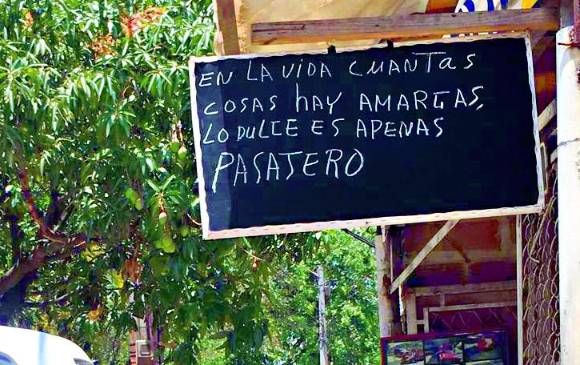 EN LA VIDA CUANTAS
COSAS hAY AMARGAS,
LO DULCE ES APENAS
PASAJERO